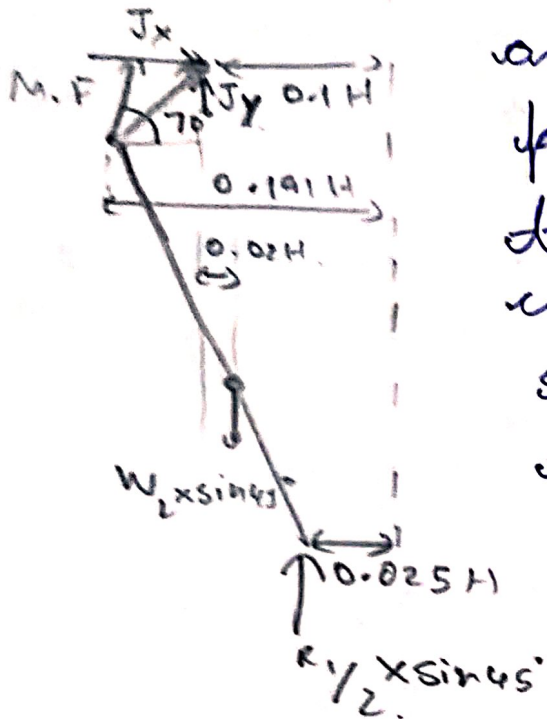 Jx
M.F
Jy
0.1H
70
0.191H
0.02H
W₂ x sin45
0.025H
R₁/₂ x sin45°